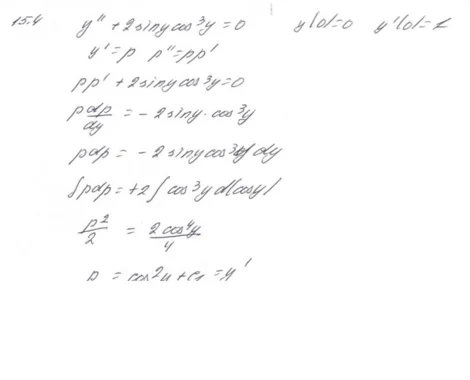 15.4 y'' + 2 sin y cos³y = 0 y(0)=0 y'(0)=1
y' = p p'' = pp'
pp' + 2 sin y cos³y = 0
p dp/dy = - 2 sin y · cos³y
pdp = - 2 sin y cos³y dy
∫pdp = +2 ∫ cos³y d(cos y)
p²/2 = 2 cos⁴y/4
p = cos²y + c₁ = y'